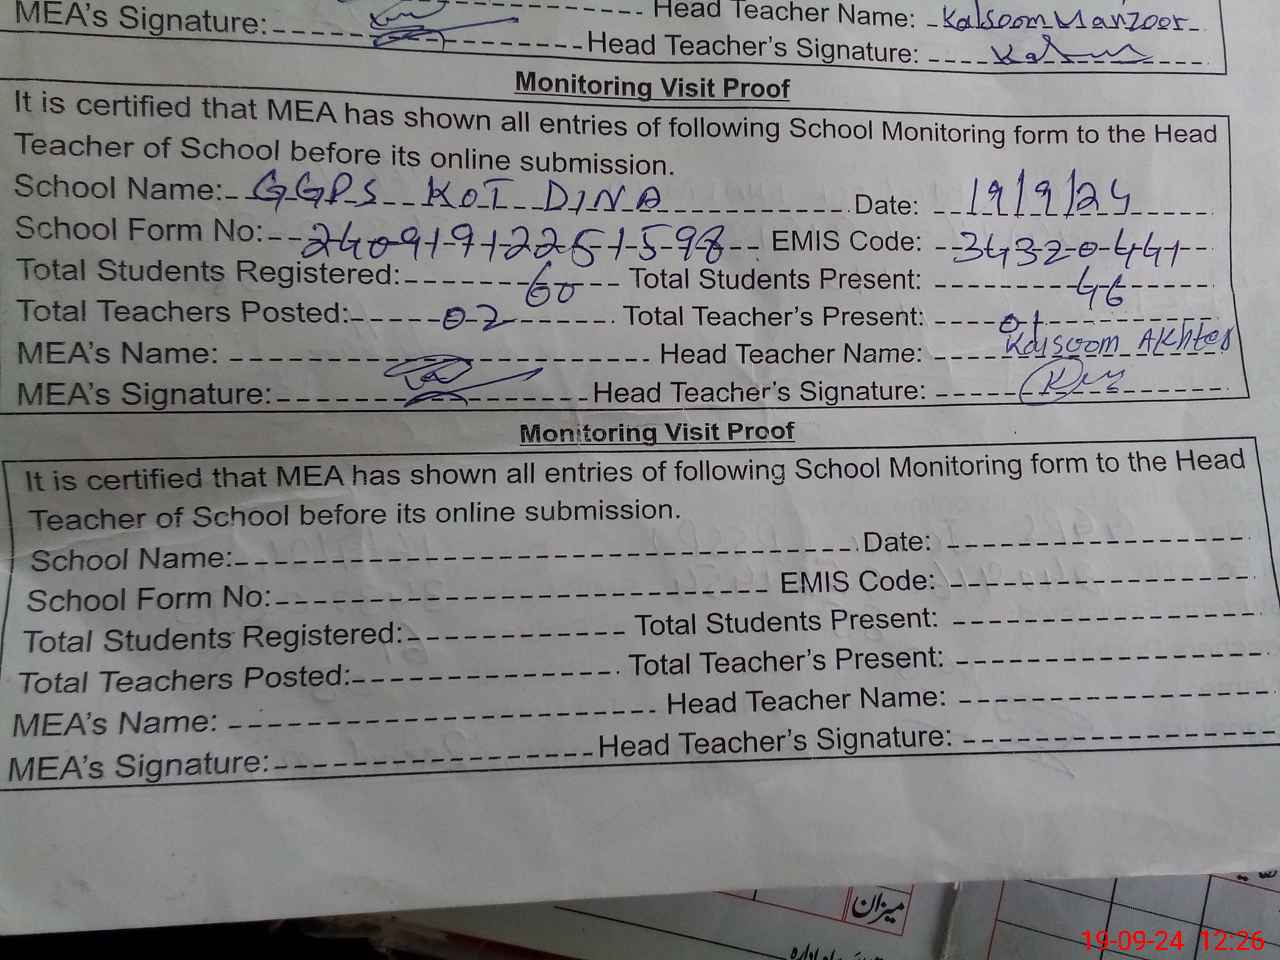 MEA's Signature: Head Teacher Name: Kalsoom Manzoor
Head Teacher's Signature:
Monitoring Visit Proof
It is certified that MEA has shown all entries of following School Monitoring form to the Head
Teacher of School before its online submission.
School Name: GGPS KOT DINA Date: 19/9/24
School Form No: 24091912251598 EMIS Code: 34320441
Total Students Registered: 60 Total Students Present: 46
Total Teachers Posted: 02 Total Teacher's Present: 01
MEA's Name: Head Teacher Name: Kalsoom Akhter
MEA's Signature: Head Teacher's Signature:
Monitoring Visit Proof
It is certified that MEA has shown all entries of following School Monitoring form to the Head
Teacher of School before its online submission.
School Name: Date:
School Form No: EMIS Code:
Total Students Registered: Total Students Present:
Total Teachers Posted: Total Teacher's Present:
MEA's Name: Head Teacher Name:
MEA's Signature: Head Teacher's Signature:
میزان
19-09-24 12:26